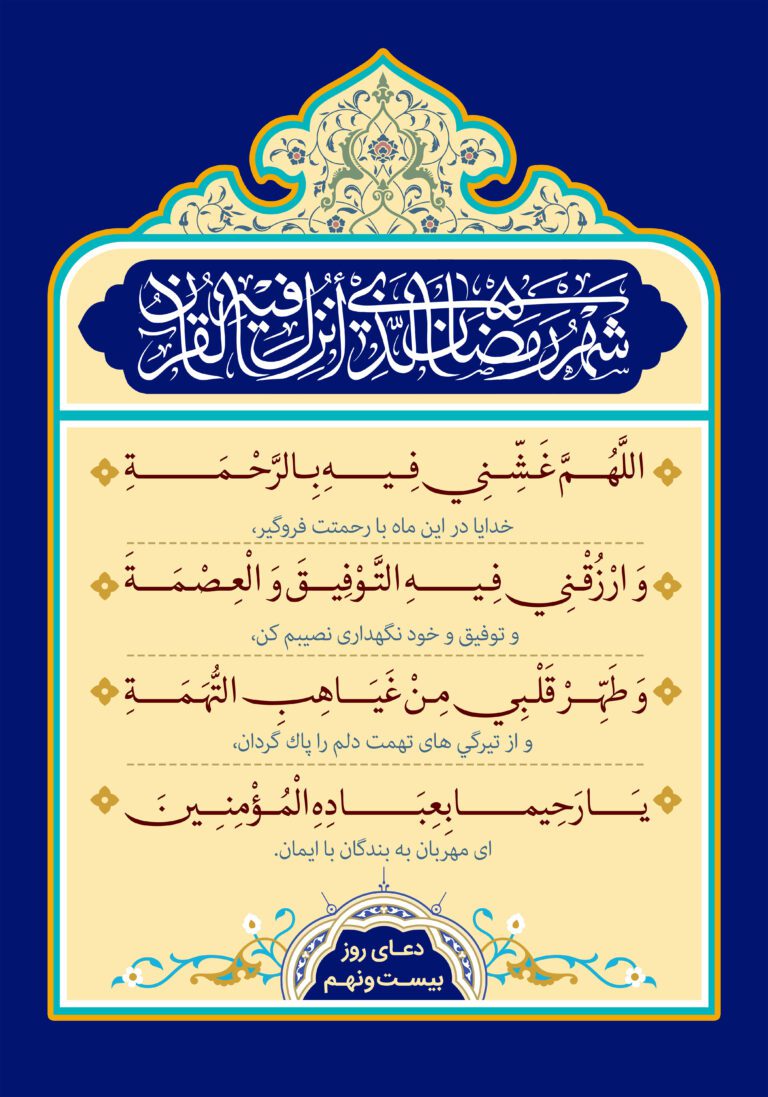 شهر رمضان الذي أنزل فيه القرآن
اللَّهُمَّ غَشِّنِي فِيهِ بِالرَّحْمَةِ
خدایا در این ماه با رحمتت فروگیر،
وَ ارْزُقْنِي فِيهِ التَّوْفِيقَ وَ الْعِصْمَةَ
و توفیق و خود نگهداری نصیبم کن،
وَ طَهِّرْ قَلْبِي مِنْ غَيَاهِبِ التُّهَمَةِ
و از تیرگي های تهمت دلم را پاك گردان،
يَا رَحِيما بِعِبَادِهِ الْمُؤْمِنِينَ
ای مهربان به بندگان با ایمان.
دعای روز
بیست‌ونهم